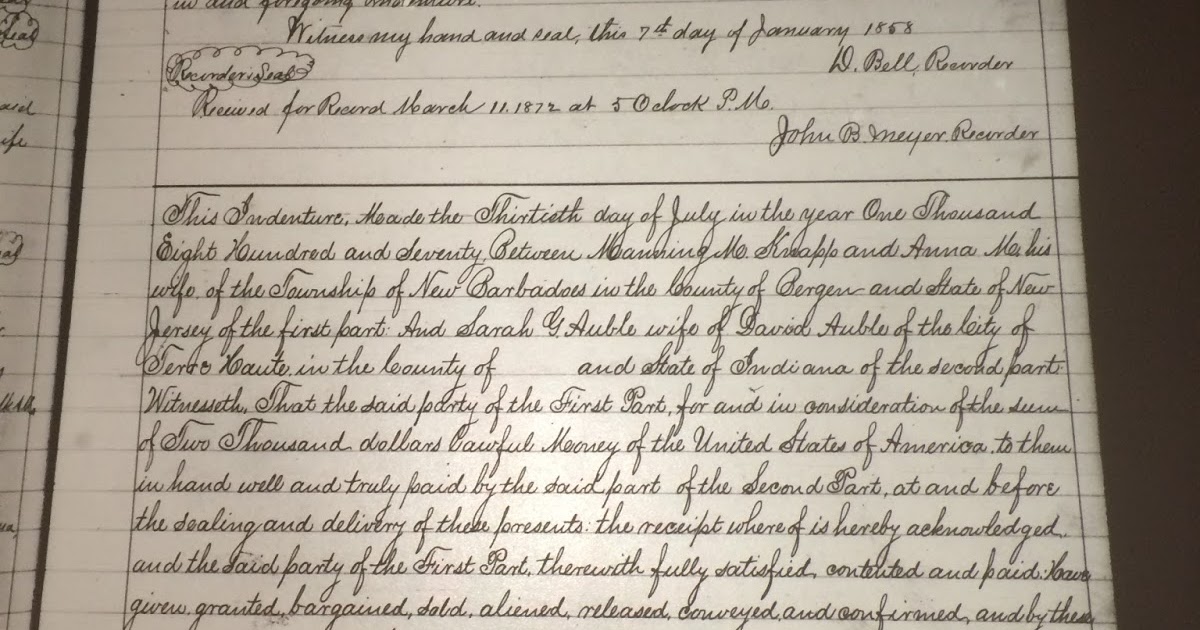 in and foregoing indenture.
Witness my hand and seal, this 7th day of January 1858
D. Bell, Recorder
Recorder's Seal
Received for Record March 11. 1872 at 5 O clock P.M.
John B. Meyer. Recorder
This Indenture, Made the Thirtieth day of July in the year One Thousand
Eight Hundred and Seventy, Between Manning M. Knapp and Anna M. his
wife, of the Township of New Barbadoes in the County of Bergen and State of New
Jersey of the first part: And Sarah G. Auble wife of David Auble of the City of
Terre Haute, in the County of and State of Indiana of the second part:
Witnesseth, That the said party of the First Part, for and in consideration of the sum
of Two Thousand dollars Lawful Money of the United States of America, to them
in hand well and truly paid by the said part of the Second Part, at and before
the sealing and delivery of these presents: the receipt where of is hereby acknowledged,
and the said party of the First Part, therewith fully satisfied, contented and paid: Have
given, granted, bargained, sold, aliened, released, conveyed, and confirmed, and by these